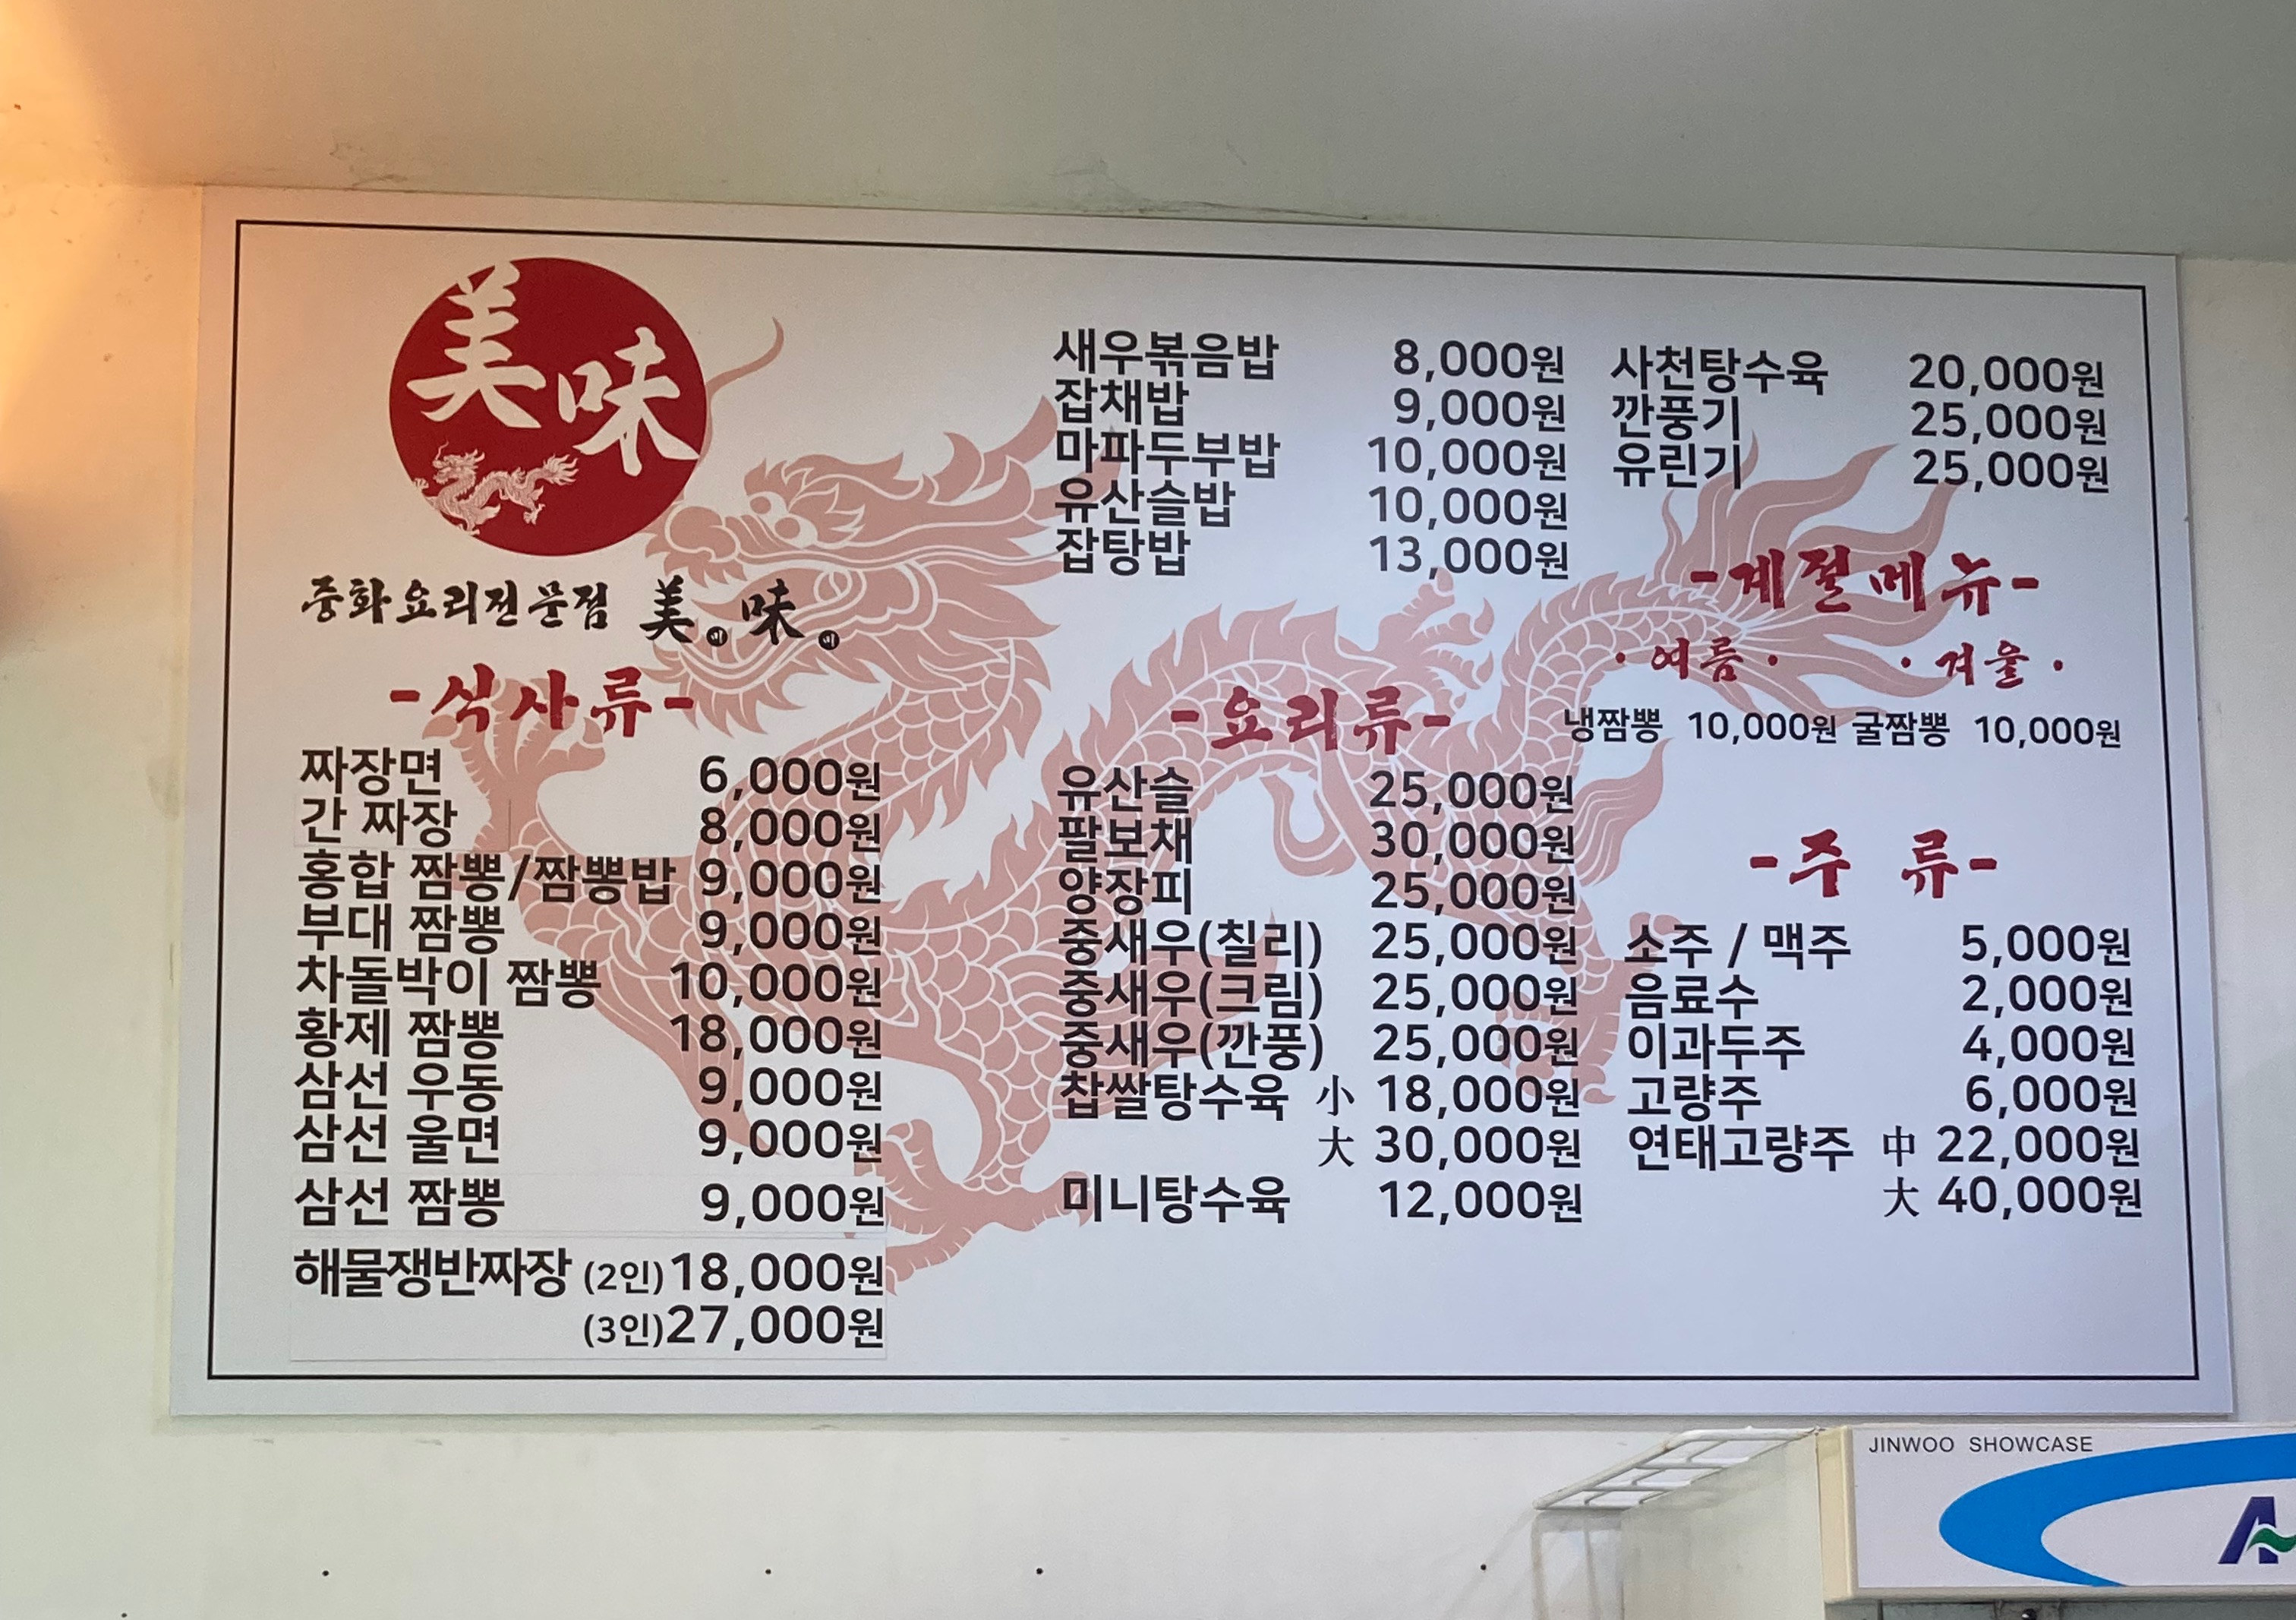 美味
중화요리전문점 美(미) 味(미)
-식사류-
짜장면 6,000원
간 짜장 8,000원
홍합 짬뽕/짬뽕밥 9,000원
부대 짬뽕 9,000원
차돌박이 짬뽕 10,000원
황제 짬뽕 18,000원
삼선 우동 9,000원
삼선 울면 9,000원
삼선 짬뽕 9,000원
해물쟁반짜장 (2인)18,000원
(3인)27,000원
새우볶음밥 8,000원
잡채밥 9,000원
마파두부밥 10,000원
유산슬밥 10,000원
잡탕밥 13,000원
-요리류-
유산슬 25,000원
팔보채 30,000원
양장피 25,000원
중새우(칠리) 25,000원
중새우(크림) 25,000원
중새우(깐풍) 25,000원
찹쌀탕수육 小 18,000원
大 30,000원
미니탕수육 12,000원
사천탕수육 20,000원
깐풍기 25,000원
유린기 25,000원
-계절메뉴-
·여름· ·겨울·
냉짬뽕 10,000원 굴짬뽕 10,000원
-주 류-
소주 / 맥주 5,000원
음료수 2,000원
이과두주 4,000원
고량주 6,000원
연태고량주 中 22,000원
大 40,000원
JINWOO SHOWCASE